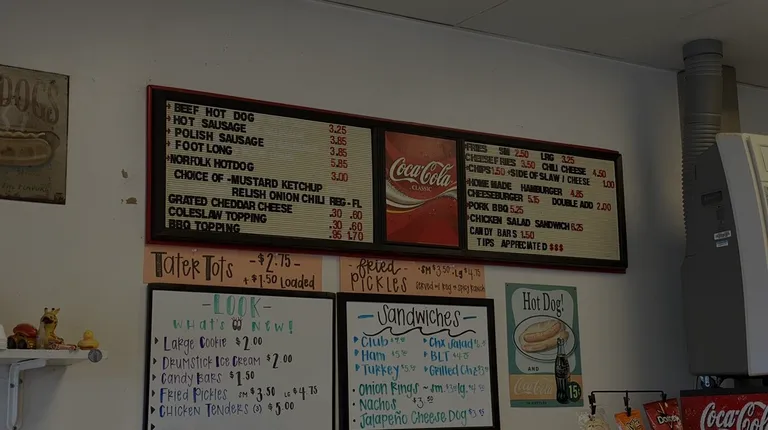 DOGS
BEEF HOT DOG 3.25
HOT SAUSAGE 3.85
POLISH SAUSAGE 3.85
FOOT LONG 5.85
NORFOLK HOTDOG 3.00
CHOICE OF -MUSTARD KETCHUP
RELISH ONION CHILI REG - FL
GRATED CHEDDAR CHEESE .30 .60
COLESLAW TOPPING .30 .60
BBQ TOPPING .95 1.70
Coca-Cola
CLASSIC
FRIES SM 2.50 LRG 3.25
CHEESE FRIES 3.50 CHILI CHEESE 4.50
CHIPS 1.50 +SIDE OF SLAW / CHEESE 1.00
HOME MADE HAMBURGER 4.85
CHEESEBURGER 5.15 DOUBLE ADD 2.00
PORK BBQ 5.25
CHICKEN SALAD SANDWICH 6.25
CANDY BARS 1.50
TIPS APPRECIATED $$$
Tater Tots - $2.75 -
+ $1.50 Loaded
fried PICKLES SM $3.50 LG $4.75
Served w/
- LOOK -
WHAT'S NEW!
Large Cookie $2.00
Drumstick Ice Cream $2.00
Candy Bars $1.50
Fried Pickles SM $3.50 LG $4.75
Chicken Tenders (3) $5.00
- Sandwiches -
Club
Ham
Turkey
Chx Salad
BLT
Grilled Chz
Onion Rings ~ sm. lg.
Nachos
Jalapeño Cheese Dog
Hot Dog!
AND
Coca-Cola
15¢
Coca-Cola